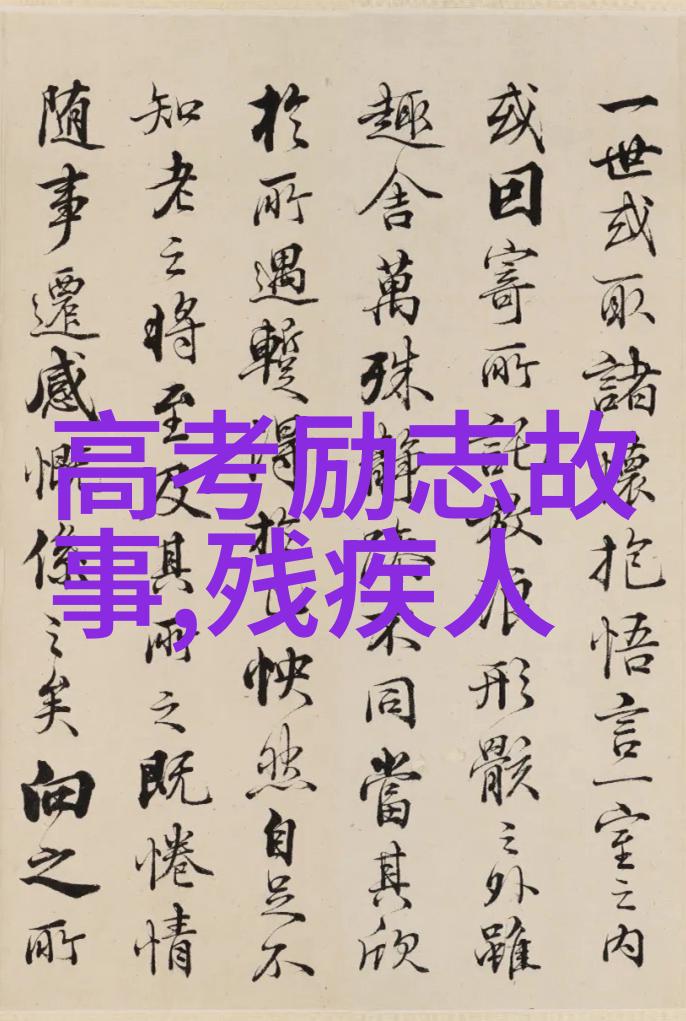 一世或取諸懷抱悟言一室之內
或因寄所託放浪形骸之外雖
趣舍萬殊靜躁不同當其欣
於所遇暫得於己怏然自足不
知老之將至及其所之既惓情
随事遷感慨係之矣向之所
高考励志故
事,残疾人